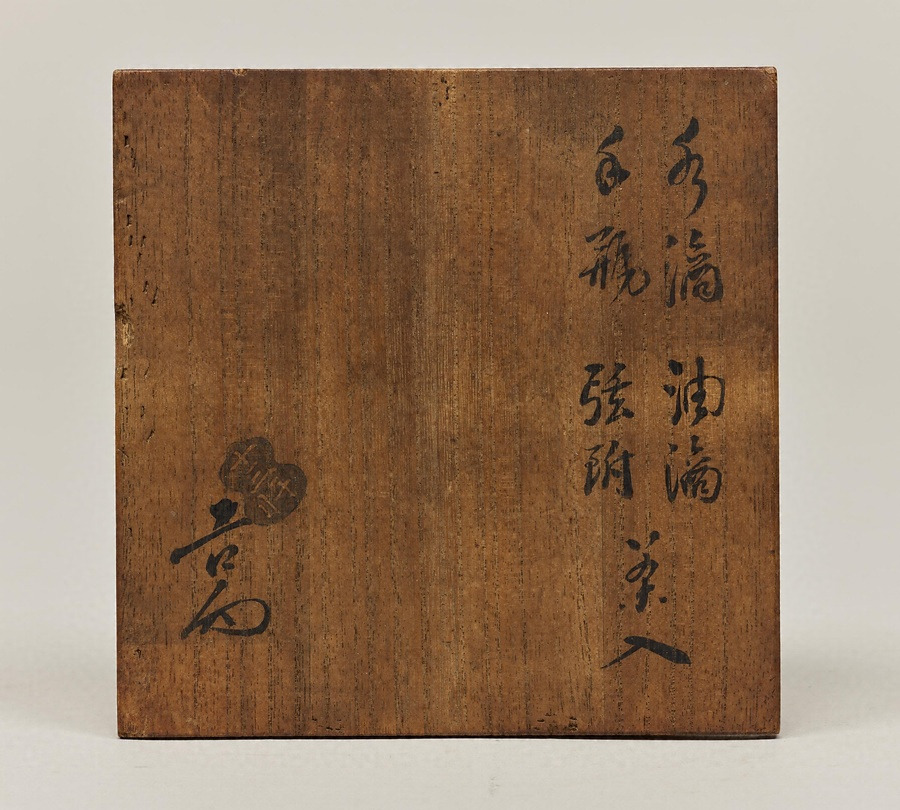 水滴 油滴
手瓶 弦附
茶入
吉向